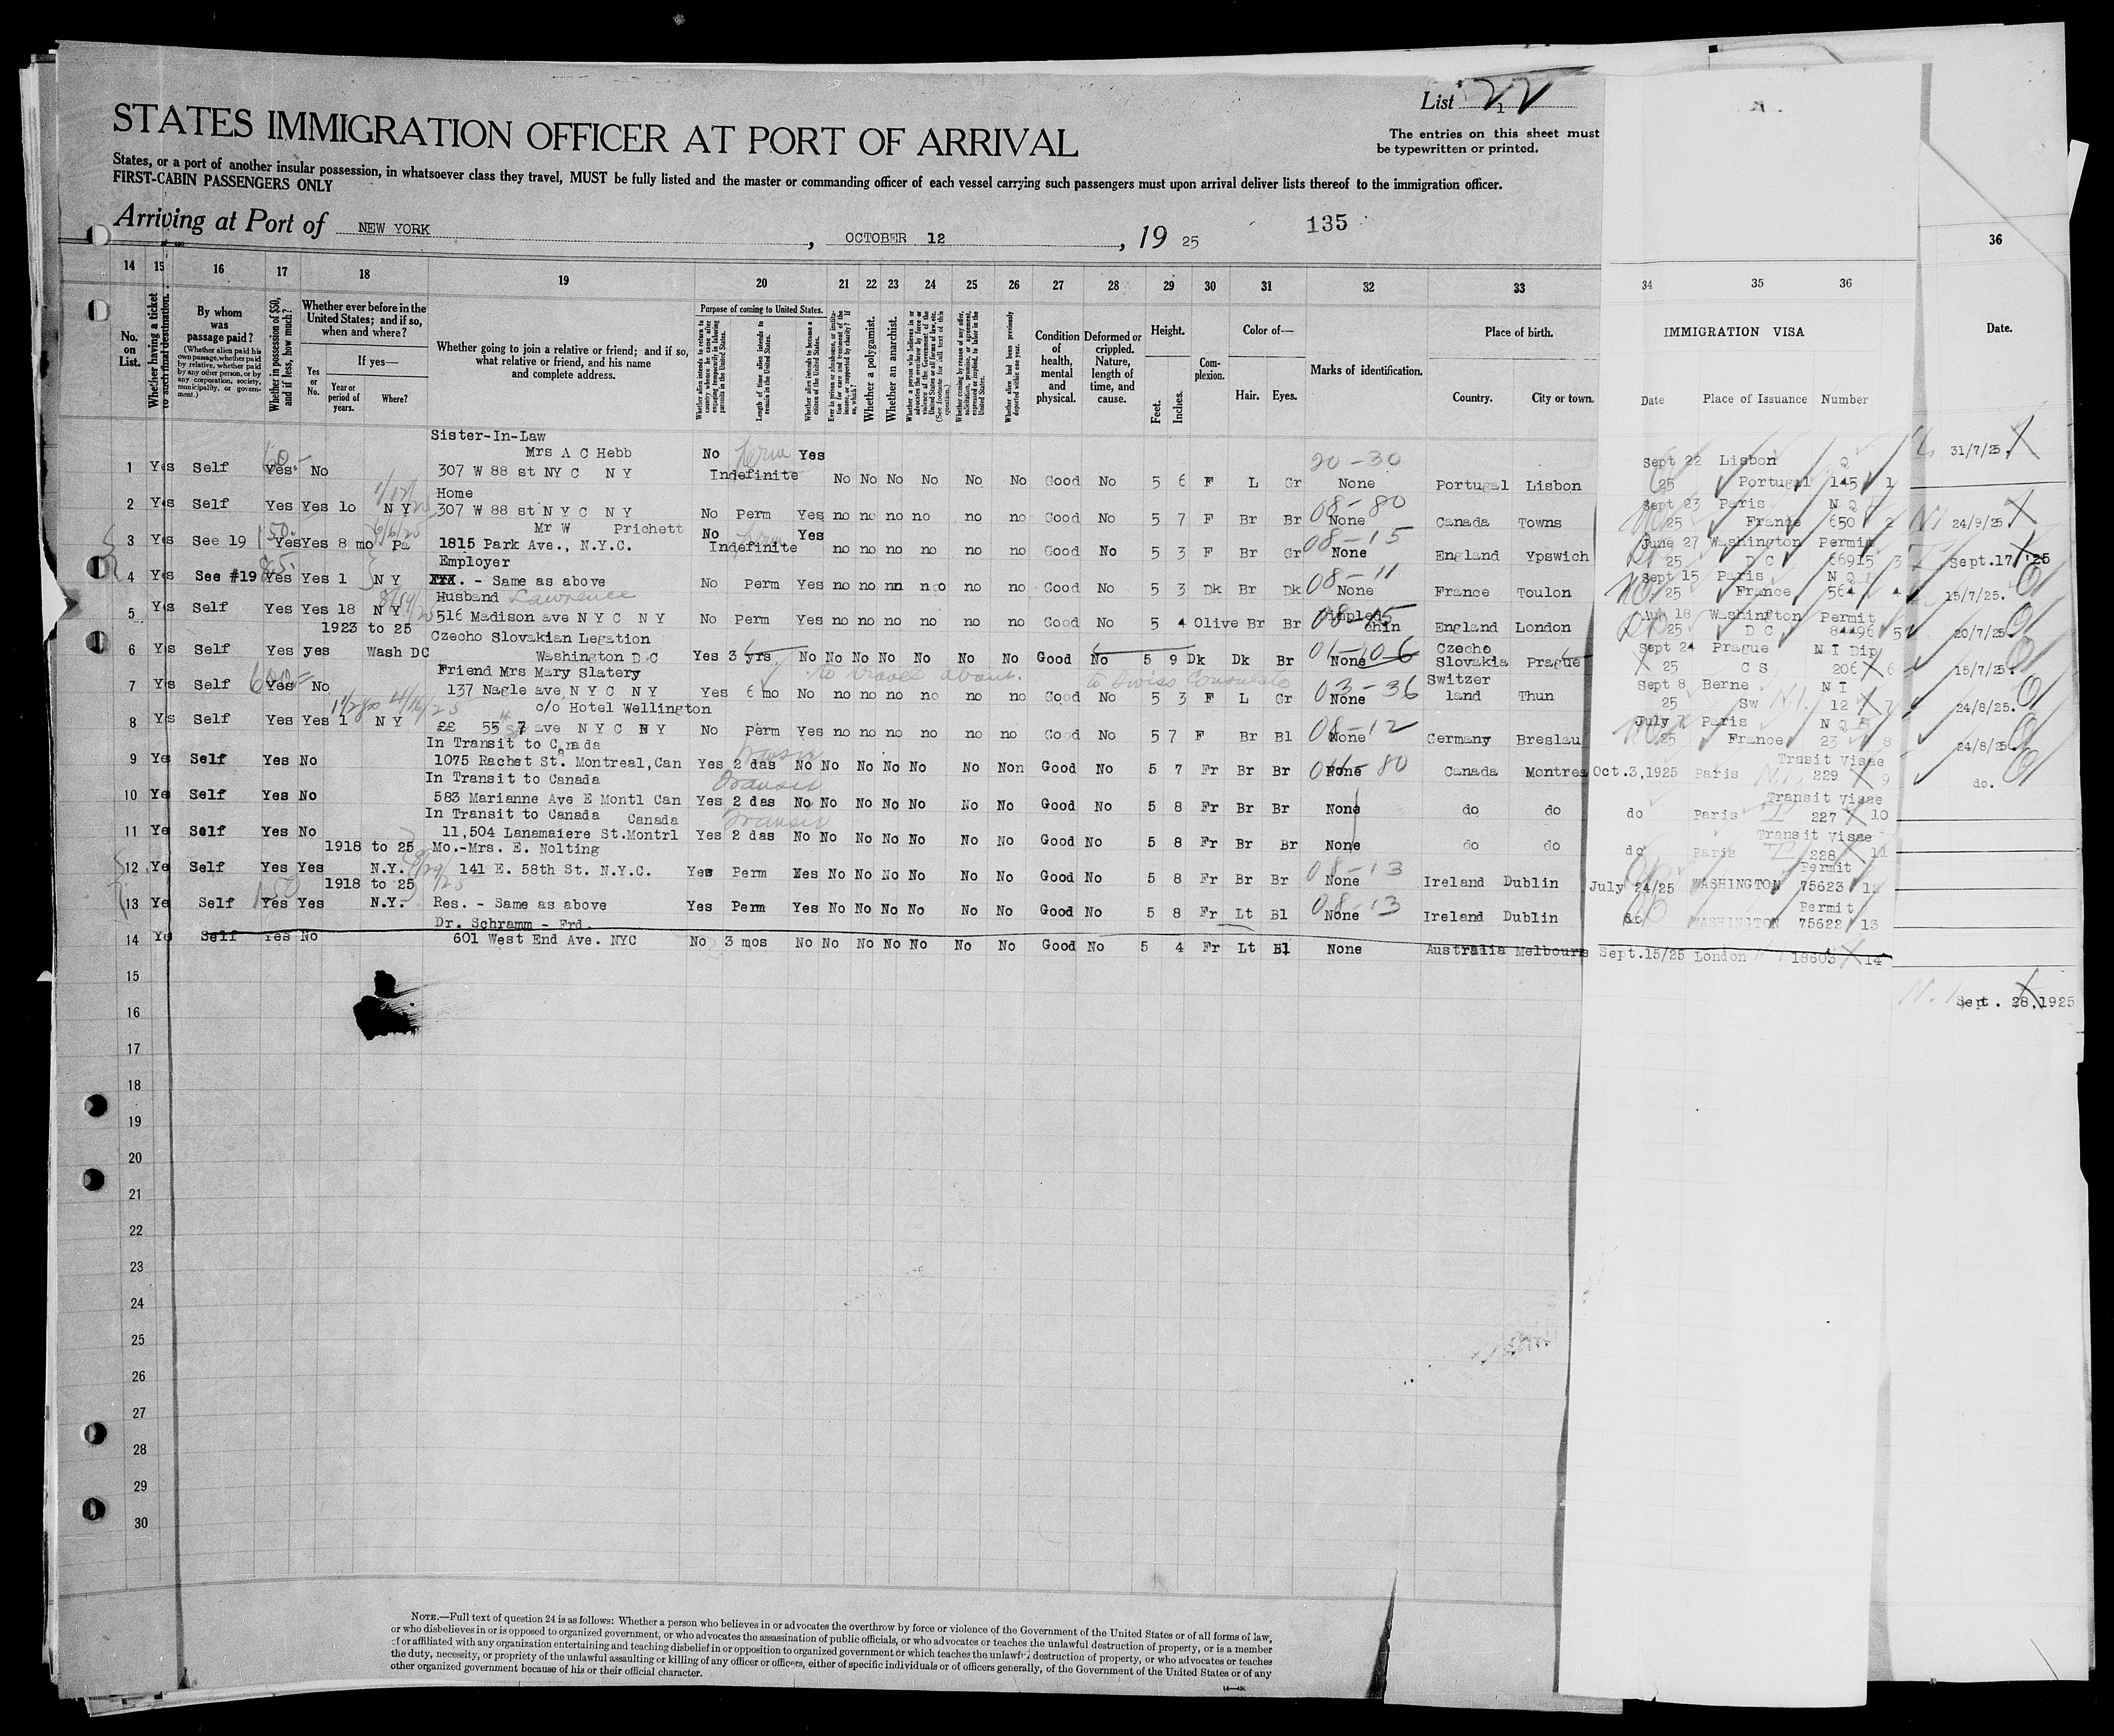 List 22
STATES IMMIGRATION OFFICER AT PORT OF ARRIVAL
The entries on this sheet must
be typewritten or printed.
States, or a port of another insular possession, in whatsoever class they travel, MUST be fully listed and the master or commanding officer of each vessel carrying such passengers must upon arrival deliver lists thereof to the immigration officer.
FIRST-CABIN PASSENGERS ONLY
Arriving at Port of NEW YORK, OCTOBER 12, 19 25 135
14 15 16 17 18 19 20 21 22 23 24 25 26 27 28 29 30 31 32 33 34 35 36 36
No. on List.
Whether having a ticket to such final destination.
By whom was passage paid?
(Whether alien paid his own passage, whether paid by relative, whether paid by any other person, or by any corporation, society, municipality, or government.)
Whether in possession of $50, and if less, how much?
Whether ever before in the United States; and if so, when and where?
Yes or No.
If yes—
Year or period of years.
Where?
Whether going to join a relative or friend; and if so, what relative or friend, and his name and complete address.
Purpose of coming to United States.
Length of time alien intends to remain in the United States.
Whether alien intends to become a citizen of the United States.
Whether a polygamist.
Whether an anarchist.
Condition of health, mental and physical.
Deformed or crippled. Nature, length of time, and cause.
Height.
Feet. Inches.
Complexion.
Color of—
Hair. Eyes.
Marks of identification.
Place of birth.
Country. City or town.
IMMIGRATION VISA
Date Place of Issuance Number
Date.
Sister-In-Law
Mrs A C Hebb No perm Yes 20-30
1 Yes Self Yes No 307 W 88 st NY C N Y Indefinite No No No No No No Good No 5 6 F L Gr None Portugal Lisbon Sept 22 25 Lisbon Portugal Q 145 1 31/7/25.
Home
2 Yes Self Yes Yes 10 N Y 307 W 88 st N Y C N Y No Perm Yes no no no no no no Good No 5 7 F Br Br 08-80 None Canada Towns Sept 23 25 Paris France N Q 650 2 24/9/25
Mr W Prichett No Yes
3 Yes See 19 Yes Yes 8 mo Pa 1815 Park Ave., N.Y.C. Indefinite no no no no no no Good No 5 3 F Br Gr 08-15 None England Ypswich June 27 25 Washington D C Permit 66915 3 Sept.17/'25
Employer
4 Yes See #19 Yes Yes 1 N Y XXX. - Same as above No Perm Yes no no nn no no no Good No 5 3 Dk Br Dk 08-11 None France Toulon Sept 15 25 Paris France N Q 564 4 15/7/25.
Husband Lawrence
5 Yes Self Yes Yes 18 N Y 516 Madison ave N Y C N Y No Perm Yes no no no no no no Good No 5 4 Olive Br Br 08-15 Dimpled Chin England London Aug 18 25 Washington D C Permit 84496 5 20/7/25
1923 to 25 Czecho Slovakian Legation
6 Yes Self Yes yes Wash DC Washington D.C Yes 3 yrs. No No No No No No No Good No 5 9 Dk Dk Br None Czecho Slovakia Prague Sept 24 25 Prague C S N I Dip 206 6 15/7/25
Friend Mrs Mary Slatery to travel about. to Swiss Consulate
7 Yes Self 600 Yes No 137 Nagle ave N Y C N Y Yes 6 mo No no no no no no no Good No 5 3 F L Gr 03-36 None Switzer land Thun Sept 8 25 Berne Sw N I 12 7 24/8/25.
c/o Hotel Wellington
8 Yes Self Yes Yes 1 N Y ££ 55 7 ave N Y C N Y No Perm Yes no no no no no no Good No 5 7 F Br Bl 08-12 None Germany Breslau July 7 25 Paris France N Q 23 8 24/8/25
In Transit to Canada transit
9 Yes Self Yes No 1075 Rachet St. Montreal, Can Yes 2 das No No No No No No Non Good No 5 7 Fr Br Br None Canada Montrea Oct.3,1925 Paris Transit Visae 229 9 do.
In Transit to Canada transit
10 Ye Self Yes No 583 Marianne Ave E Montl Can Yes 2 das No No No No No No No Good No 5 8 Fr Br Br None do do do Paris Transit Visae 227 10
In Transit to Canada Canada transit
11 Ye Self Yes No 11,504 Lanamaiere St.Montrl Yes 2 das No No No No No No No Good No 5 8 Fr Br Br None do do do Paris Transit Visae 228 11
1918 to 25 Mo.-Mrs. E. Nolting
12 Ye Self Yes Yes N.Y. 141 E. 58th St. N.Y.C. Yes Perm Yes No No No No No No Good No 5 8 Fr Br Br 08-13 None Ireland Dublin July 24/25 WASHINGTON Permit 75623 12
1918 to 25
13 Ye Self Yes Yes N.Y. Res. - Same as above Yes Perm Yes No No No No No No Good No 5 8 Fr Lt Bl 08-13 None Ireland Dublin do WASHINGTON Permit 75622 13
Dr. Schramm - Frd.
14 Ye Self Yes No 601 West End Ave. NYC No 3 mos No No No No No No No Good No 5 4 Fr Lt Bl None Australia Melbourne Sept.15/25 London 18603 14
Sept. 28,1925
15
16
17
18
19
20
21
22
23
24
25
26
27
28
29
30
NOTE.—Full text of question 24 is as follows: Whether a person who believes in or advocates the overthrow by force or violence of the Government of the United States or of all forms of law,
or who disbelieves in or is opposed to organized government, or who advocates the assassination of public officials, or who advocates or teaches the unlawful destruction of property, or is a member
of or affiliated with any organization entertaining and teaching disbelief in or opposition to organized government or which teaches the unlawful destruction of property, or who advocates or teaches
the duty, necessity, or propriety of the unlawful assaulting or killing of any officer or officers, either of specific individuals or of officers generally, of the Government of the United States or of any
other organized government because of his or their official character.